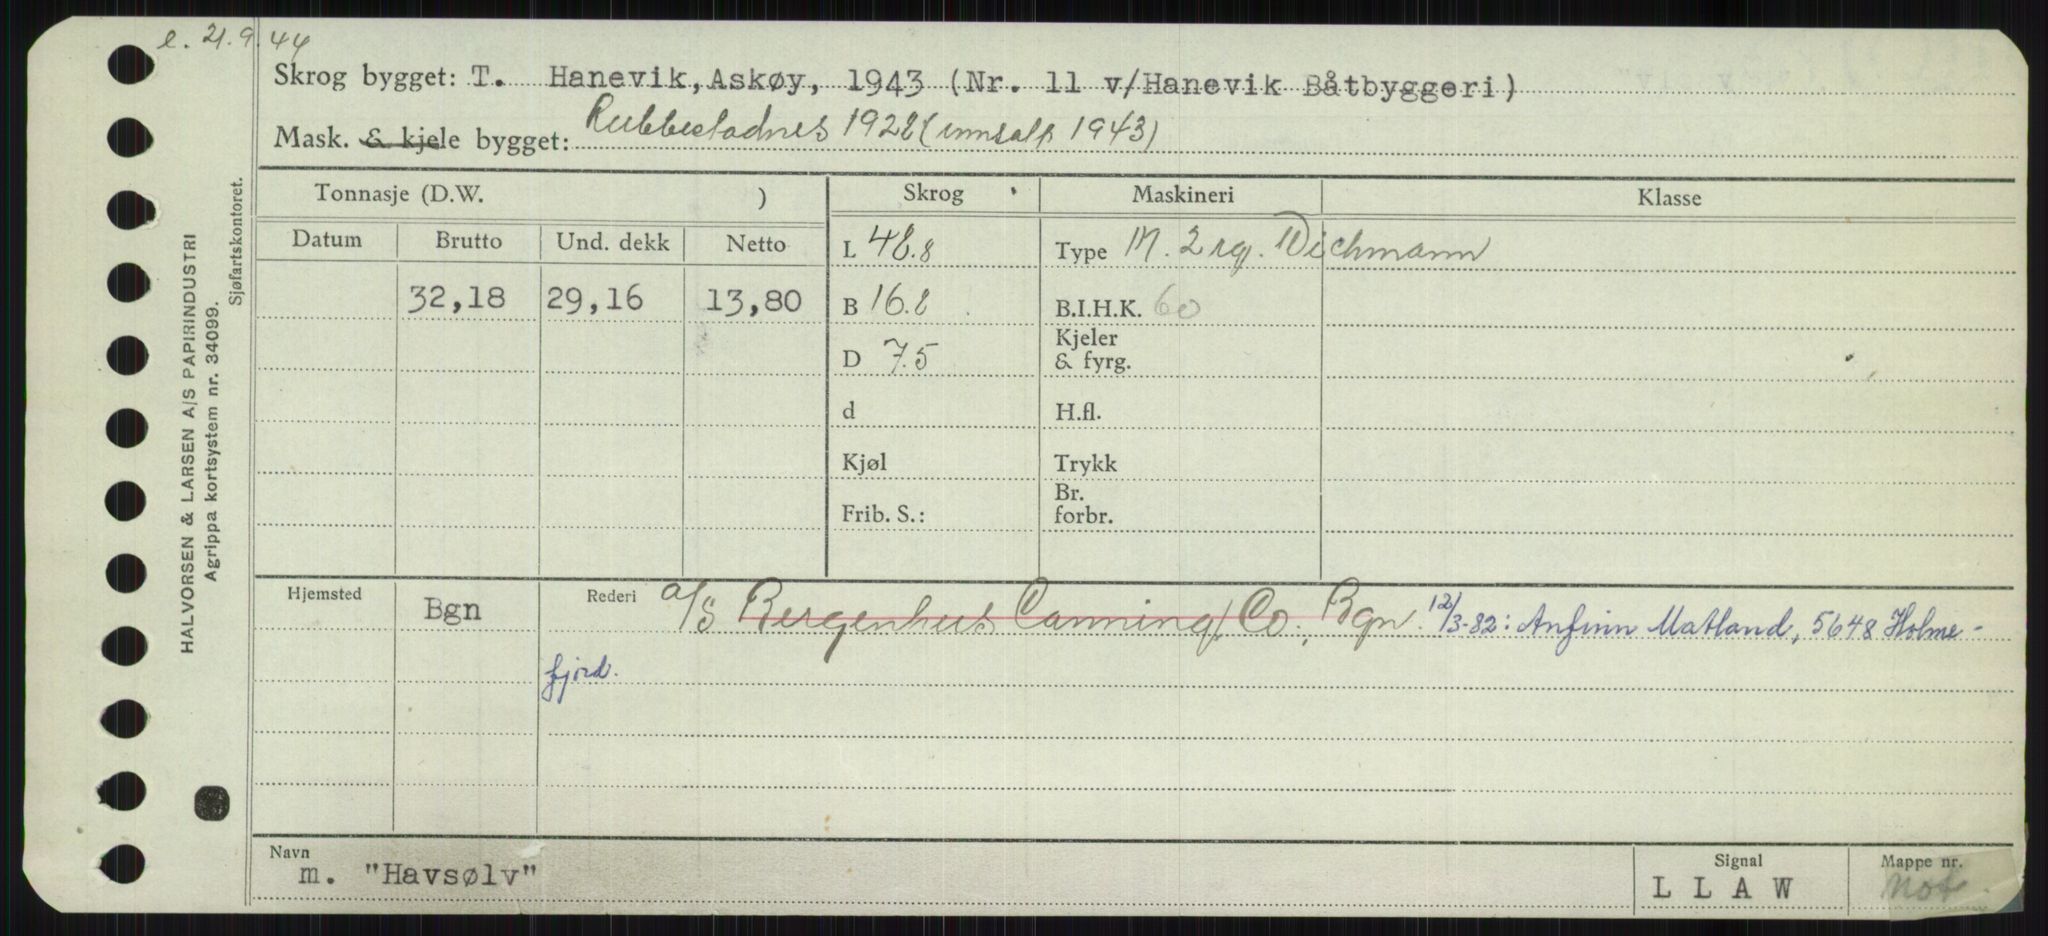 e. 21.9.44
Skrog bygget: T. Hanevik, Askøy, 1943 (Nr. 11 v/Hanevik Båtbyggeri)
Mask. & kjele bygget: Rubbestadnes 1928 (innsatt 1943)
Tonnasje (D.W. )
Skrog
Maskineri
Klasse
Datum Brutto Und. dekk Netto
L 48.8
Type M. 2 sy. Wichmann
32,18 29,16 13,80
B 16.8
B.I.H.K. 60
D 7.5
Kjeler
& fyrg.
d
H.fl.
Kjøl
Trykk
Frib. S.:
Br.
forbr.
Hjemsted Bgn
Rederi a/s Bergenhus Canning Co, Bgn. 12/3-82: Anfinn Matland, 5648 Holme-
fjord.
Navn
m. "Havsølv"
Signal
L L A W
Mappe nr.
Not
HALVORSEN & LARSEN A/S PAPIRINDUSTRI
Agrippa kortsystem nr. 34099.
Sjøfartskontoret.